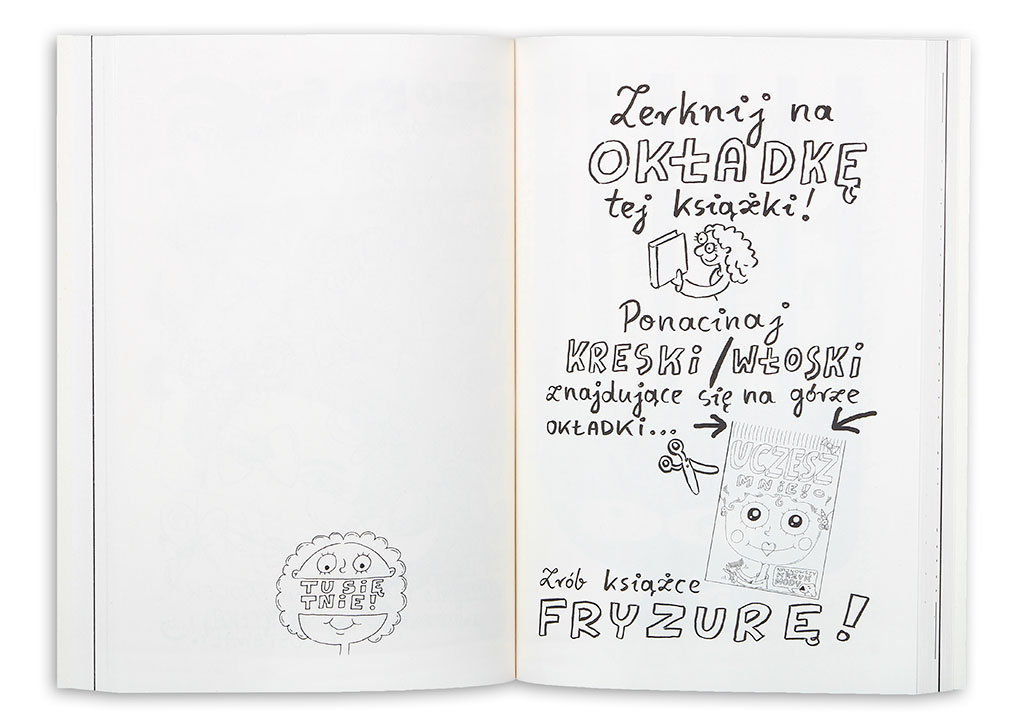 TU SIĘ
TNIE!
Zerknij na
OKŁADKĘ
tej książki!
Ponacinaj
KRESKi/WŁOSKi
znajdujące się na górze
OKŁADKi...
UCZESZ
MNiE!
Zrób książce
FRYZURĘ!